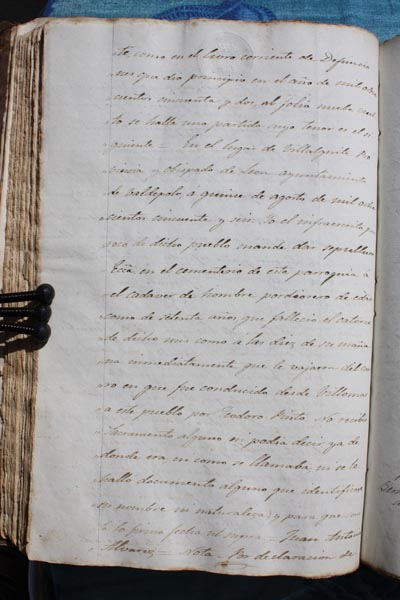 te, como en el libro corriente de Defuncio
nes que dio principio en el año de mil ocho
cientos cincuenta y dos, al folio nueve vuel
to se halla una partida cuyo tenor es el si
guiente = En el lugar de Villalquite Pro
vincia y obispado de Leon ayuntamiento
de Valdepolo, á quince de agosto de mil ocho
cientos cincuenta y seis. Yo el infraescrito pa
rroco de dicho pueblo mande dar sepultura
Ecca. en el cementerio de esta parroquia á
el cadaver de hombre pordiosero de edad
como de setenta años que fallecio el catorce
de dicho mes como á las diez de su maña
na inmediatamente que le vajaron del ca
rro en que fue conducido desde Villomar
a este pueblo por Teodoro Prieto No recibio
Sacramento alguno ni podia decir ya de
donde era, ni como se llamaba, ni se le
hallo documento alguno que identificara
su nombre ni naturaleza, y para que cons
te lo firmo fecha ut supra = Juan Antonio
Alvarez = Nota. Por declaracion de